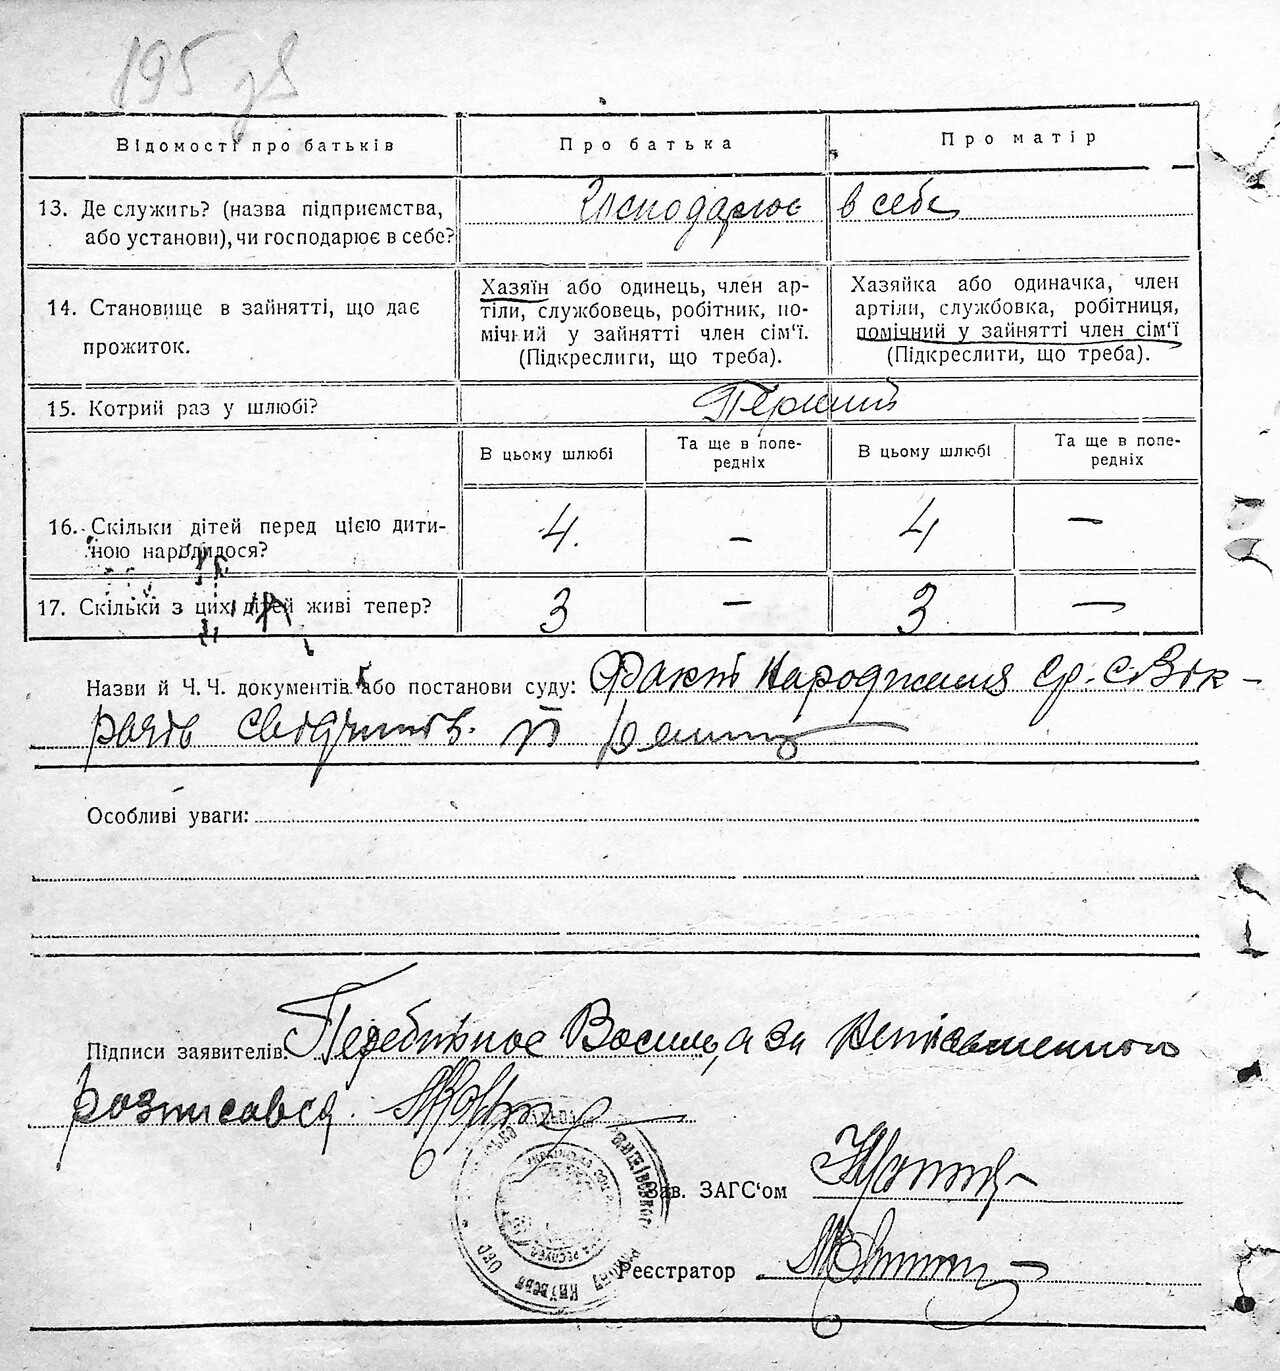 195 зв
Відомості про батьків
Про батька
Про матір
13. Де служить? (назва підприємства,
або установи), чи господарює в себе?
Господарює в себе
14. Становище в зайнятті, що дає
прожиток.
Хазяїн або одинець, член ар-
тіли, службовець, робітник, по-
мічний у зайнятті член сім‘ї.
(Підкреслити, що треба).
Хазяйка або одиначка, член
артіли, службовка, робітниця,
помічний у зайнятті член сім‘ї
(Підкреслити, що треба).
15. Котрий раз у шлюбі?
Перший
В цьому шлюбі
Та ще в попе-
редніх
В цьому шлюбі
Та ще в попе-
редніх
16. Скільки дітей перед цією дити-
ною народилося?
4. – 4 –
17. Скільки з цих дітей живі тепер?
3 – 3 –
Назви й Ч. Ч. документів або постанови суду: Факт народження
Особливі уваги:
Підписи заявителів: Василь, а за неписьменного
розписався
Зав. ЗАГС‘ом
Реєстратор